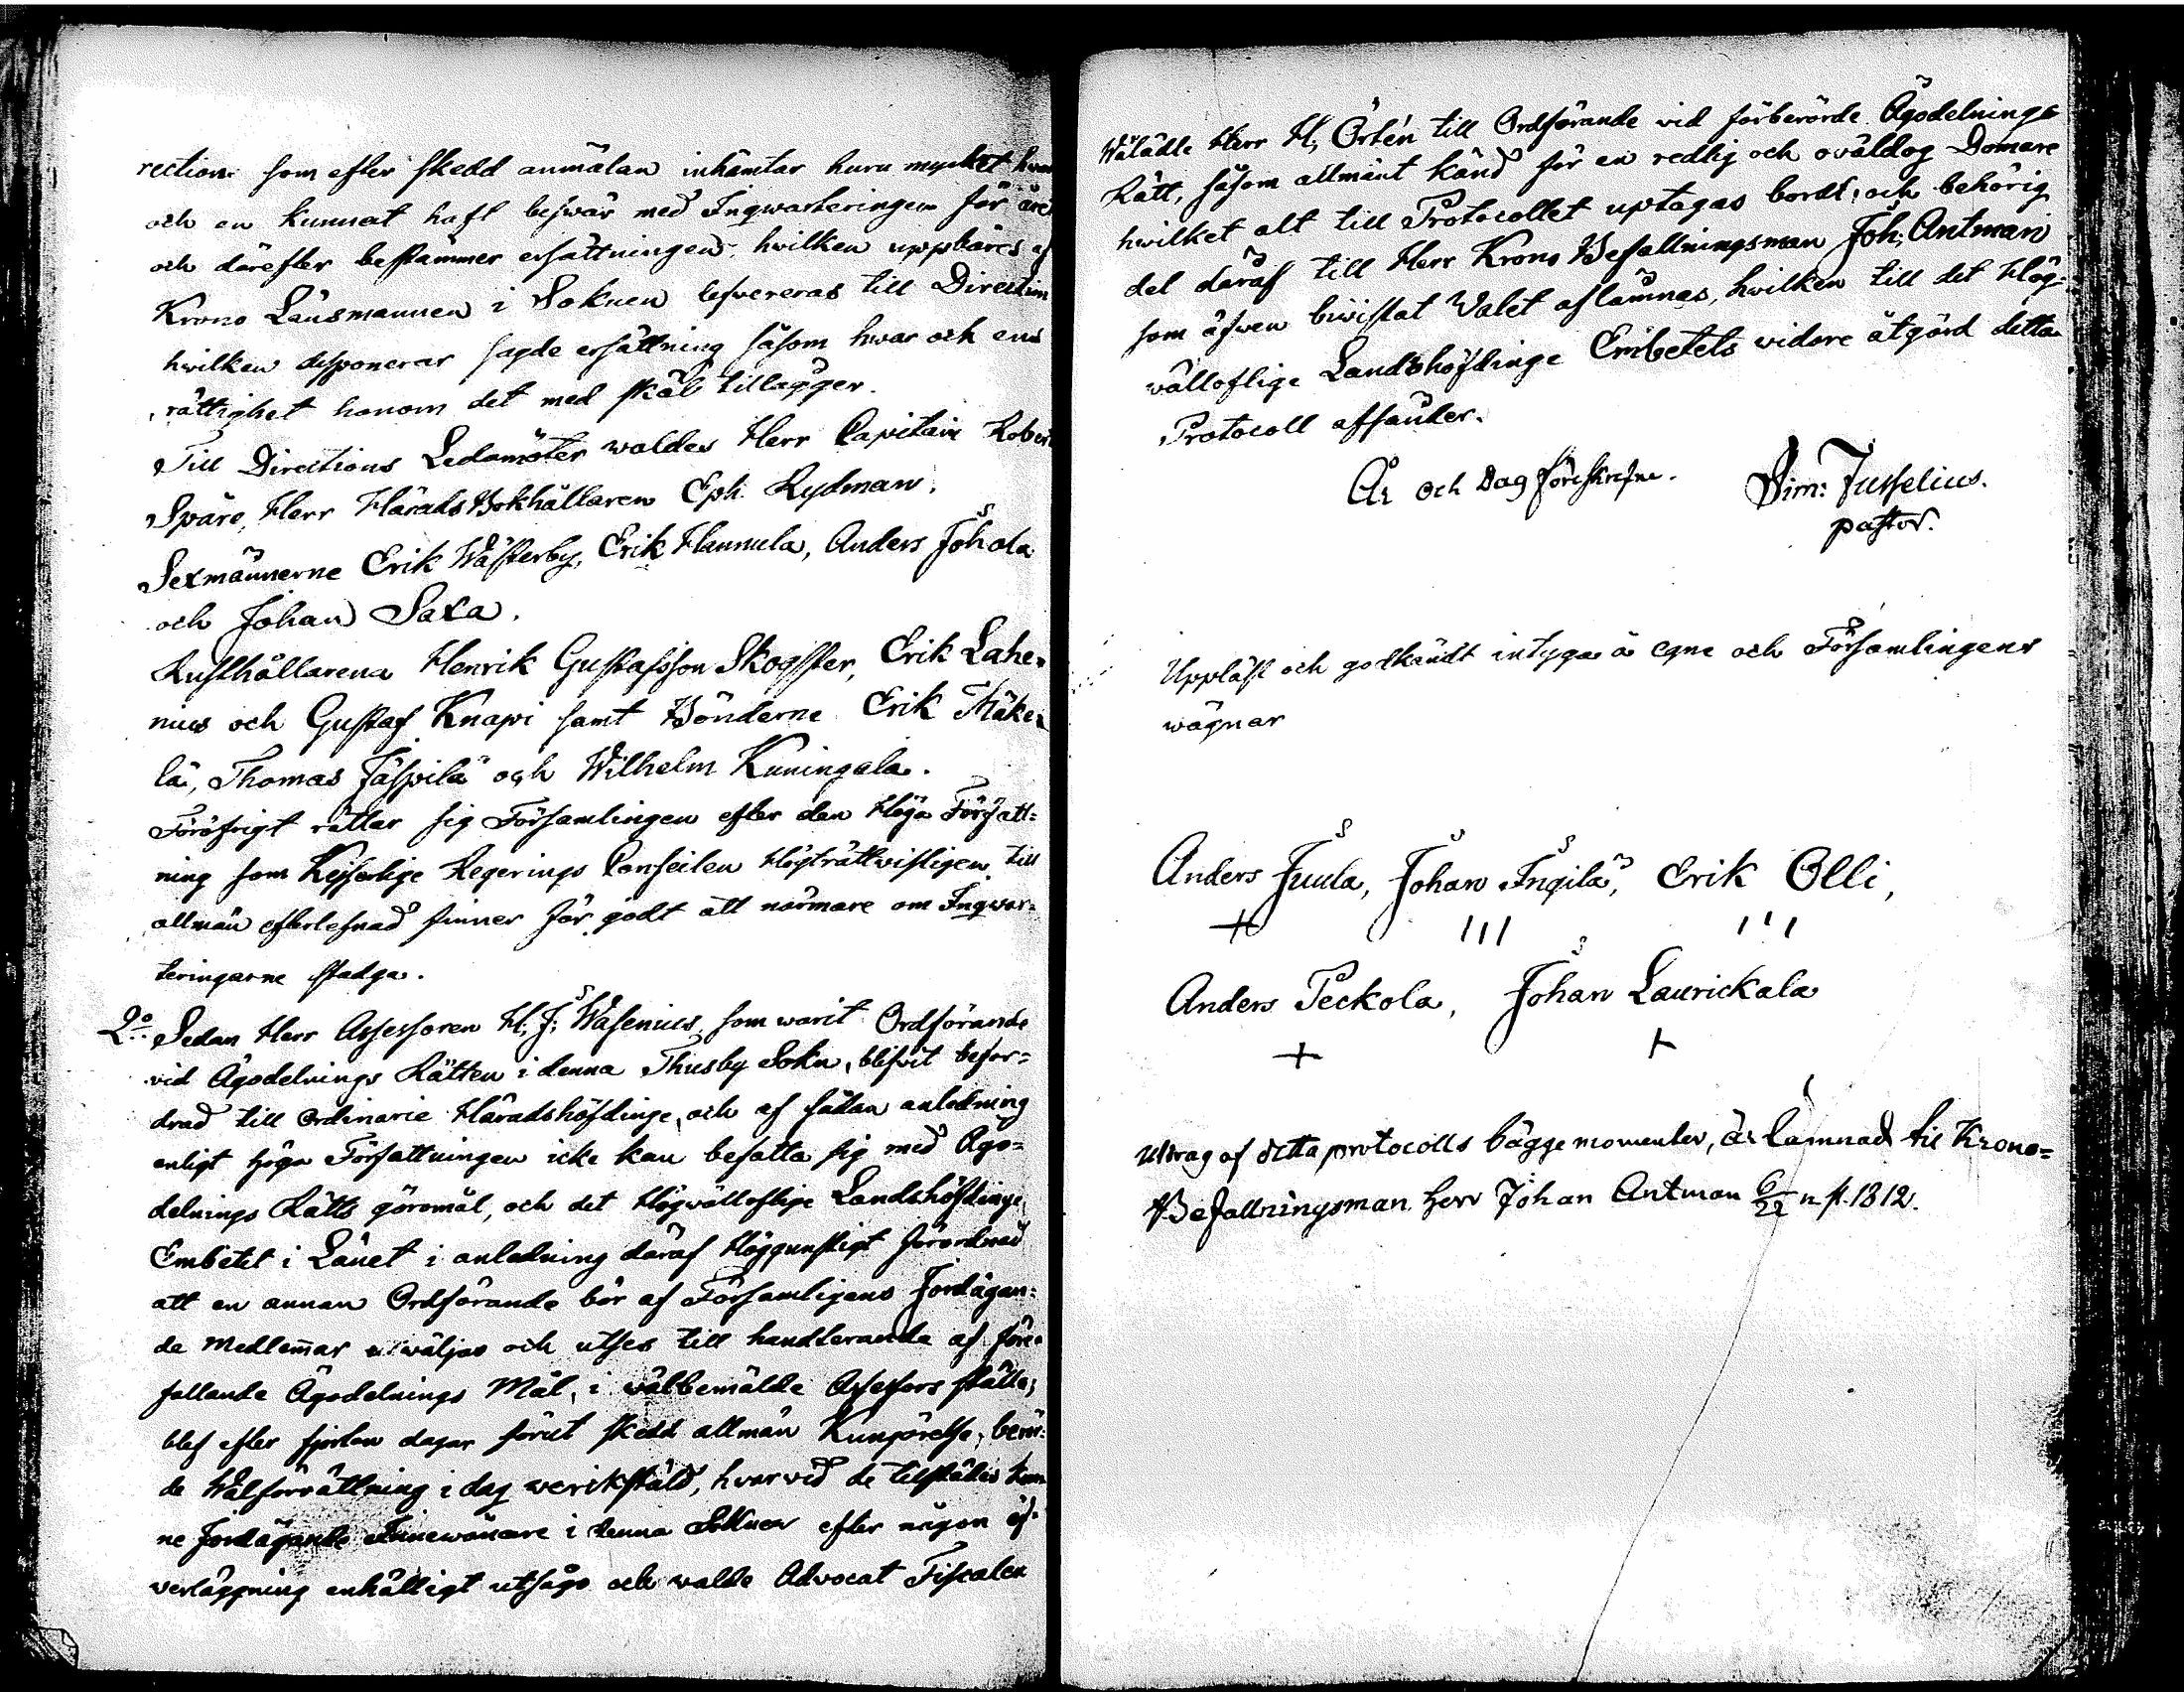 rection som efter skedd anmälan inhämtar huru mycket hwar
och en kunnat haft beswär med Inqwarteringen för året
och därefter bestämmer ersättningen, hvilken uppbäres af
Krono Länsmannen i Soknen lefvereras till Direction
hvilken disponerar sagde ersättning såsom hwar och ens
rättighet honom det med skäl tillägger.
Till Directions Ledamöter waldes Herr Capitain Robert
Spåre, Herr Härads Bokhållaren Eph. Rydman.
Sexmännerne Erik Wästerby, Erik Hannula, Anders Johola
och Johan Saxa.
Rusthållarena Henrik Gustafsson Skogster, Erik Lahe-
nius och Gustaf Knapi samt Bönderne Erik Mäke-
lä, Thomas Jäspilä och Wilhelm Kuningala.
Föröfrigt rättar sig Församlingen efter den Höga Författ=
ning som Kejserlige Regerings Conseilen Högrättvisligen till
allmän efterlefnad finner för godt att närmare om Inqwar=
teringarne stadga.
2o Sedan Herr Assessoren H: J: Wasenius, som warit Ordförande
vid Ägodelnings Rätten i denna Thusby Sokn, blifvit befor=
drad till ordinarie Häradshöfdinge, och af sådan anledning
enligt höga Författningen icke kan befatta sig med Ägo=
delnings Rätts göromål, och det Högvälloflige Landshöfdinge
Embetet i Länet i anledning däraf Höggunstigt förordnad
att en annan Ordförande bör af Församligens Jordägan=
de Medlemar utwäljas och utses till handterande af före
fallande Ägodelnings Mål, i välbemälde Assessors ställe;
blef efter fjorton dagar förut skedd allmän Kungörelse, berör=
de Walförrättning i dag verkstäld, hvarvid de tillstädes kom
ne Jordägande Innewånare i denna Soknen efter någon öf=
verläggning enhälligt utsågo och walde Advocat Fiscalen
Wälädle Herr H: Örtén till Ordförande vid förberörde Ägodelnings
Rätt, såsom allmänt känd för en redlig och oväldog Domare
hwilket alt till Protocollet uptagas borde; och behörig
del däraf till Herr Krono Befallningsman Joh: Antman
som äfwen biwistat Walet aflämnas, hvilken till det Hög=
välloflige Landshöfdinge Embetets vidare åtgärd detta
Protocoll afsänder.
År och Dag föreskrefne. Sim: Jusselius.
pastor.
Uppläst och godkändt intyga å egne och Församlingens
wägnar
Anders Juula, Johan Ingilä, Erik Olli,
Anders Peckola, Johan Laurickala
Utdrag af detta protocolls bägge momenter, är lämnad til Krono=
Befallningsman Herr Johan Antman 6/22 n. st. 1812.